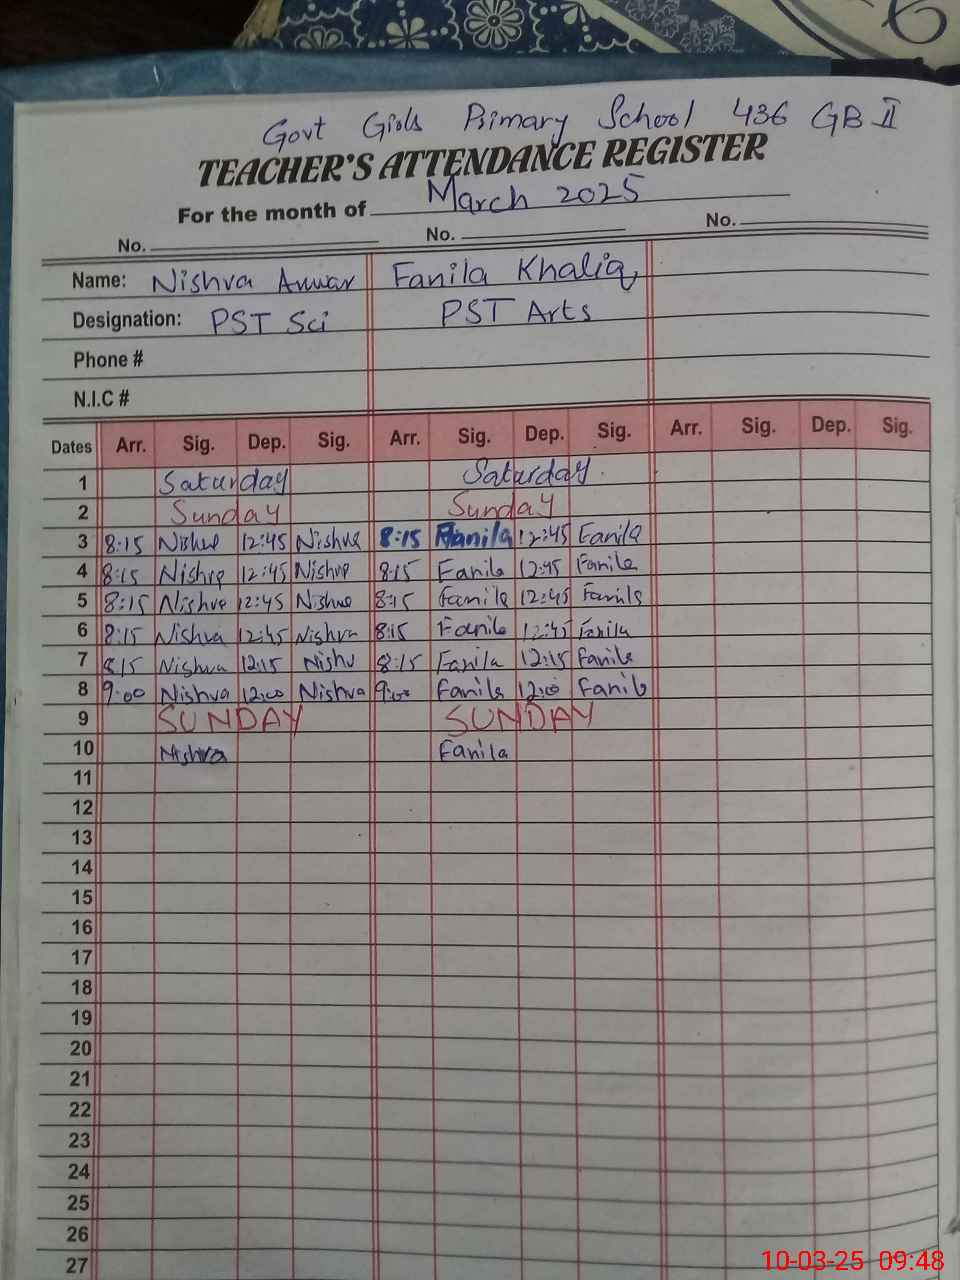 Govt Girls Primary School 436 GB II
TEACHER'S ATTENDANCE REGISTER
For the month of March 2025
No. No. No.
Name: Nishva Anwar Fanila Khaliq
Designation: PST Sci PST Arts
Phone #
N.I.C #
Dates Arr. Sig. Dep. Sig. Arr. Sig. Dep. Sig. Arr. Sig. Dep. Sig.
1 Saturday Saturday.
2 Sunday Sunday
3 8:15 Nishve 12:45 Nishva 8:15 Fanila 12:45 Fanila
4 8:15 Nishva 12:45 Nishva 8:15 Fanila 12:45 Fanila
5 8:15 Nishva 12:45 Nishva 8:15 Fanila 12:45 Fanila
6 8:15 Nishva 12:45 Nishva 8:15 Fanila 12:45 Fanila
7 8:15 Nishva 12:15 Nishv 8:15 Fanila 12:15 Fanila
8 9:00 Nishva 12:00 Nishva 9:00 Fanila 12:00 Fanila
9 SUNDAY SUNDAY
10 Nishva Fanila
11
12
13
14
15
16
17
18
19
20
21
22
23
24
25
26
27
10-03-25 09:48